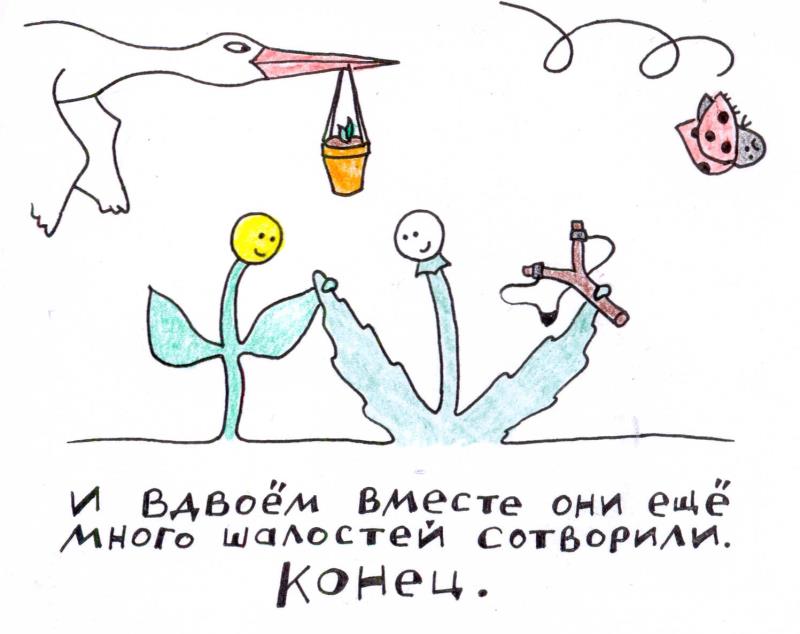 И вдвоём вместе они ещё
много шалостей сотворили.
Конец.